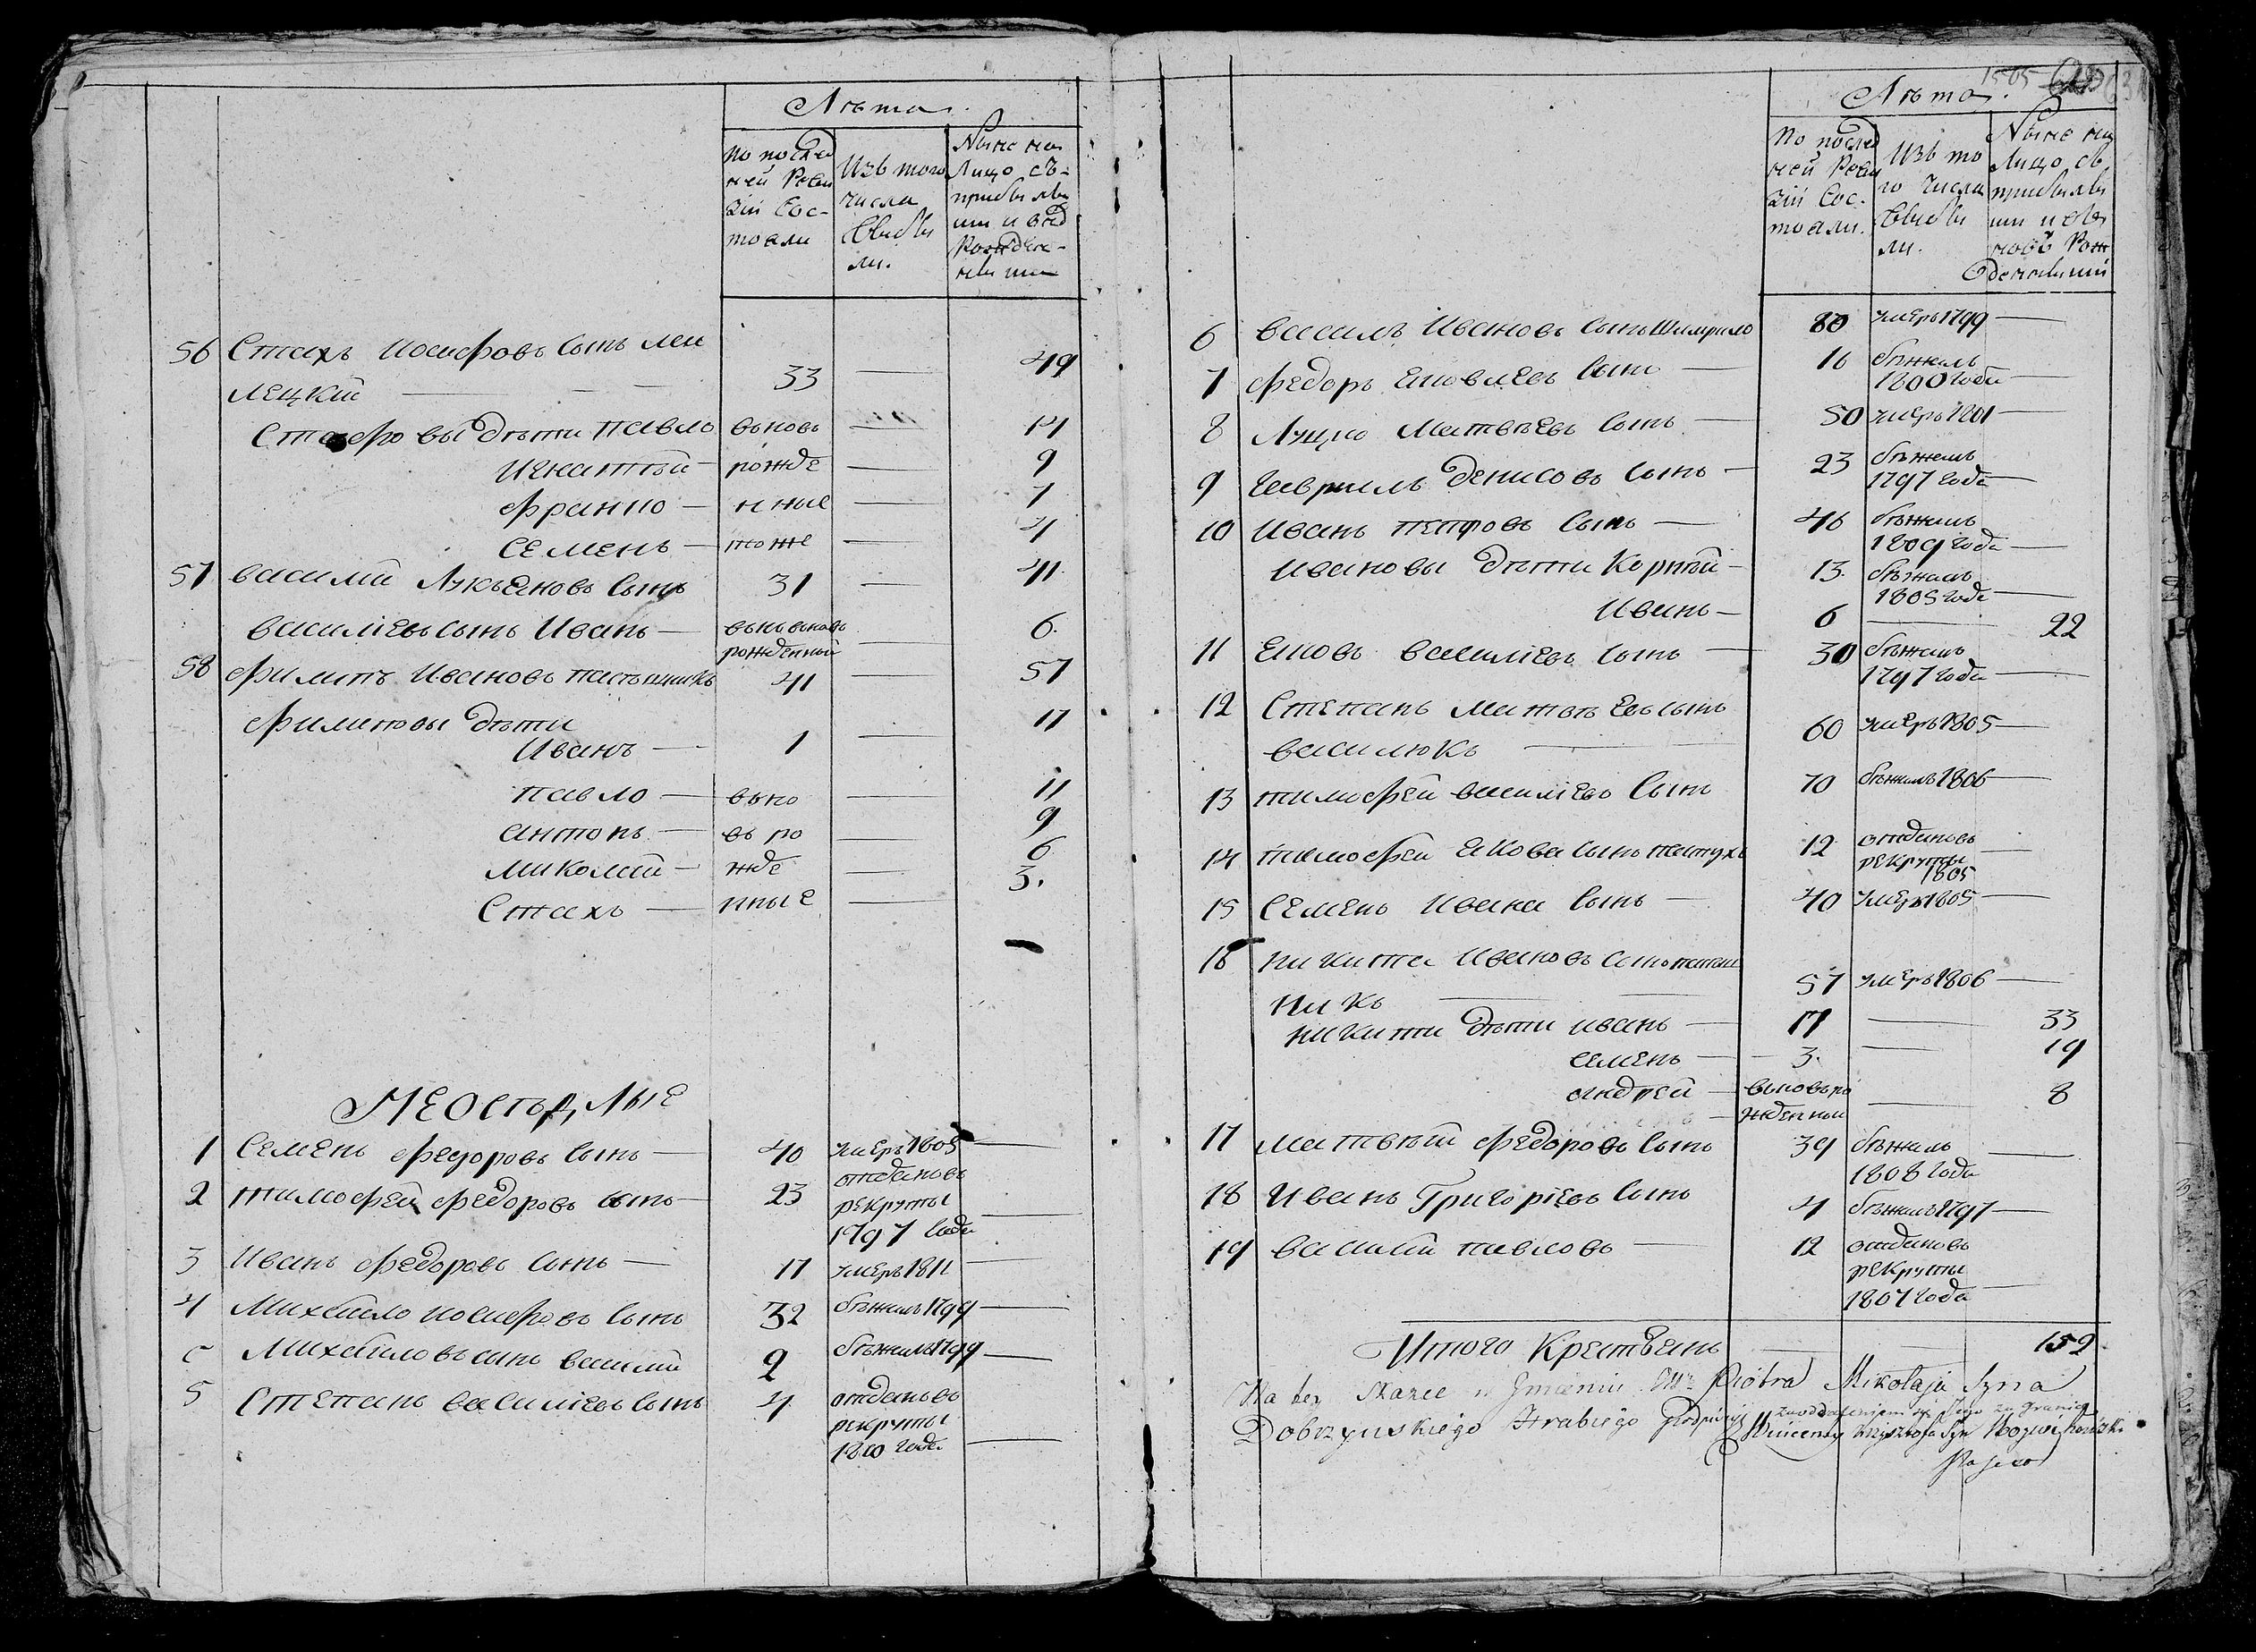 Лѣта.
По послѣд
ней Реви
зіи Сос-
тояли
Изъ того
числа
выбы
ли.
Ныне на
лицо съ
прибылы
ми и внов
Рожден-
ными
56 Стахъ Иосифовъ сынъ
лецкий — 33 — 49
Стафовы дѣти павло вновь — 14
игнатый рожде — 9
Франко — нные — 7
Семенъ — тоже — 4
57 василий Лукьяновъ сынъ 31 — 41
василіевъ сынъ Иванъ — вновь
рожденный — 6.
58 Филипъ Ивановъ пастышникъ 41 — 57
Филиповы дѣти
Иванъ — 1 — 17
павло — вно — 11
антонъ — въ ро — 9
миколай — жде — 6
Стахъ — нные — 3.
Неосѣдлые
1 Семенъ Федоровъ сынъ — 40 умеръ 1805 —
2 тимофей Федоровъ сынъ — 23 отданъ въ
рекруты
1797 года —
3 Иванъ Федоровъ сынъ — 17 умеръ 1811 —
4 Михайло иосифовъ сынъ 32 бѣжалъ 1799 —
Михайловъ сынъ василий 9 бѣжалъ 1799 —
5 Степанъ василіевъ сынъ 4 отданъ въ
рекруты
1810 года —
1505
Лѣта.
По послѣд
ней Реви
зіи Сос-
тояли.
Изъ то
го числа
выбы
ли.
Ныне на
лицо съ
прибылы
ми и
новь Рож
денными
6 василъ Ивановъ сынъ 80 умеръ 1799 —
7 Федоръ Яковлевъ сынъ — 16 бѣжалъ
1800 года —
8 Луцко Матвѣевъ сынъ — 50 умеръ 1801 —
9 Гаврилъ денисовъ сынъ — 23 бѣжалъ
1797 года —
10 Иванъ петровъ сынъ — 46 бѣжалъ
1809 года —
Ивановы дѣти Корнѣй — 13. бѣжалъ
1805 года —
Иванъ — 6 — 22
11 Яковъ василіевъ сынъ — 30 бѣжалъ
1797 года —
12 Степанъ матвѣевъ сынъ
василюкъ — 60 умеръ 1805 —
13 тимофей василіевъ сынъ 70 бѣжалъ 1806 —
14 тимофей якова сынъ пастухъ 12 отданъ въ
рекруты
1805 —
15 Семенъ Ивана сынъ — 40 умеръ 1805 —
16 никита Ивановъ сынъ
никъ — 57 умеръ 1806 —
никити дѣти иванъ — 17 — 33
семенъ — 3. — 19
андрей — вновь ро
жденный — 8
17 матвѣй Федоровъ сынъ 39 бѣжалъ
1808 года —
18 Иванъ Григоріевъ сынъ 4 бѣжалъ 1797 —
19 василій павловъ — 12 отданъ въ
рекруты
1807 года —
Итого Крестьянъ — 152.
Na tey Skazce w Imieniu Piotra Mikołaja Syna
za granicę
Dobrzynskiego Hrabiego Wincenty Krzysztofa Syn